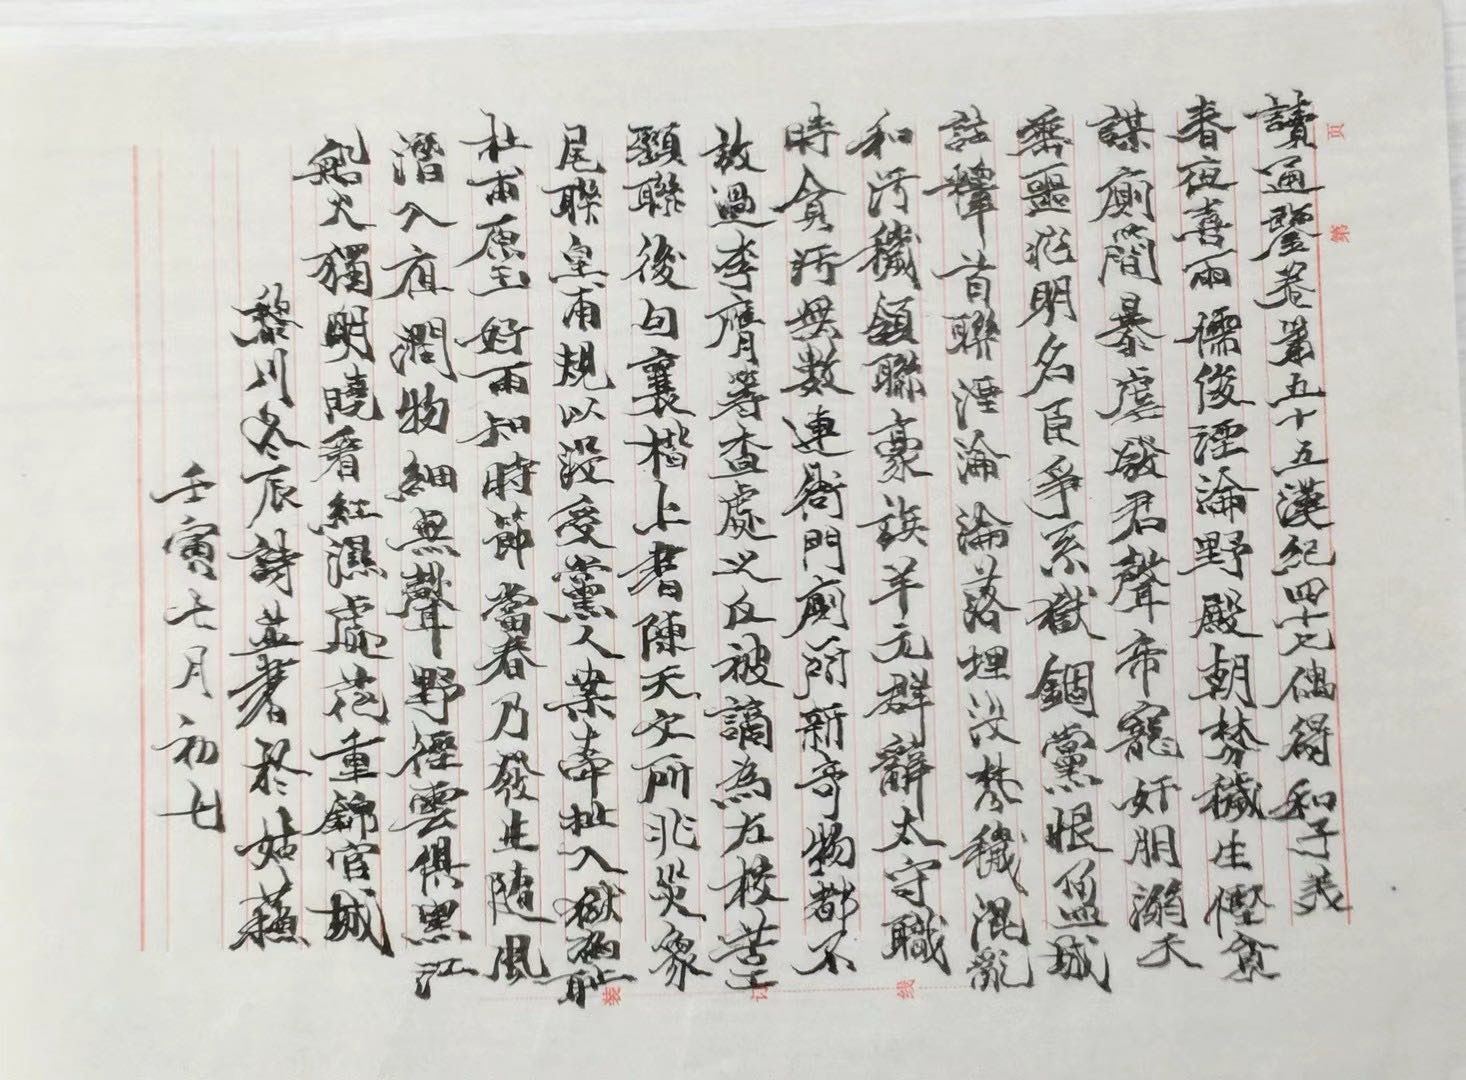 讀通鑒卷第五十五漢紀四十七偶得和子美
春夜喜雨儒俊湮淪野殿朝棼穢生慳貪
謀廁簡暴虐發君聲帝寵奸朋溺天
垂噩兆明名臣爭系獄錮黨恨盈城
註釋首聯湮淪淪落埋沒棼穢混亂
和污穢頷聯豪族羊元群辭太守職
時貪污無數連衙門廁所新奇物都不
放過李膺等查處之反被謫為左校苦工
頸聯後句襄楷上書陳天文所兆災象
尾聯皇甫規以沒受黨人案牽扯入獄為恥
杜甫原玉好雨知時節當春乃發生隨風
潛入夜潤物細無聲野徑雲俱黑江
船火獨明曉看紅濕處花重錦官城
黎川冬辰詩並書於姑蘇
壬寅七月初七
页 第
装 订 线